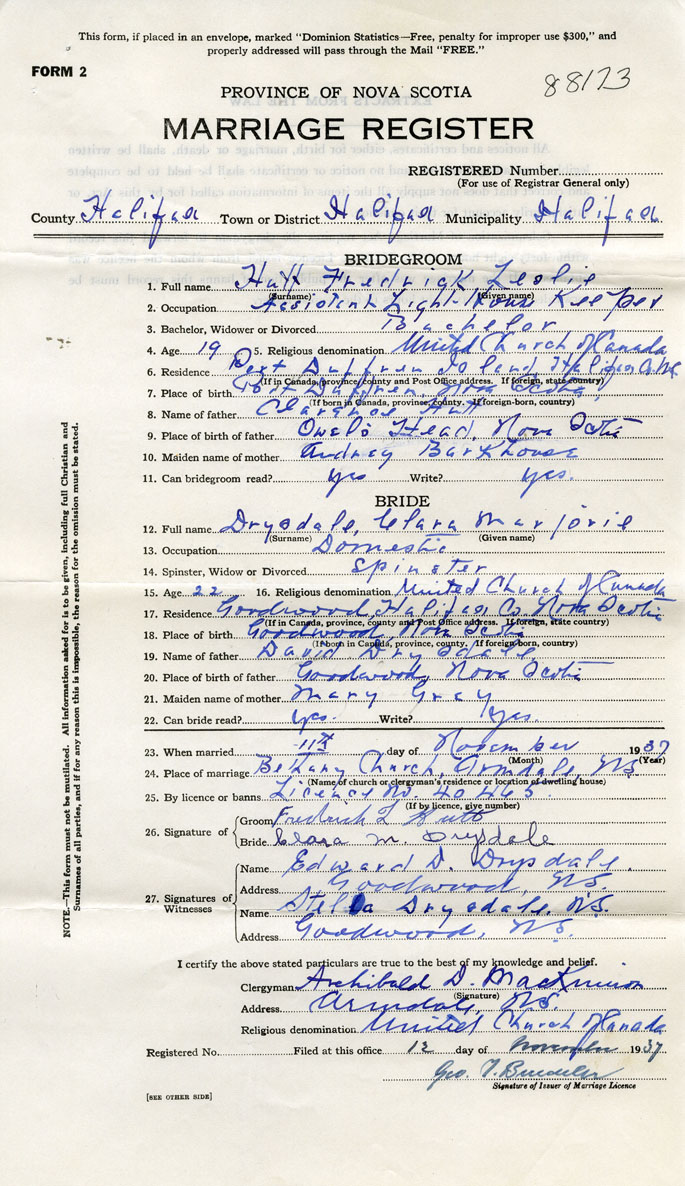 This form, if placed in an envelope, marked "Dominion Statistics—Free, penalty for improper use $300," and
properly addressed will pass through the Mail "FREE."
FORM 2
88173
PROVINCE OF NOVA SCOTIA
MARRIAGE REGISTER
REGISTERED Number
(For use of Registrar General only)
County Halifax Town or District Halifax Municipality Halifax
BRIDEGROOM
1. Full name Hutt Fredrick Leslie
(Surname) (Given name)
2. Occupation Assistent Light-House Keeper
3. Bachelor, Widower or Divorced Bachelor
4. Age 19 5. Religious denomination United Church of Canada
6. Residence Port Duffren Island, Halifax Co. N.S.
(If in Canada, province, county and Post Office address. If foreign, state country)
7. Place of birth Port Duffren, Nova Scotia,
(If born in Canada, province, county. If foreign-born, country)
8. Name of father Clarence Hutt
9. Place of birth of father Owels Head, Nova Scotia
10. Maiden name of mother Audrey Barkhouse
11. Can bridegroom read? yes Write? yes.
BRIDE
12. Full name Drysdale, Clara Marjorie
(Surname) (Given name)
13. Occupation Domestic
14. Spinster, Widow or Divorced Spinster
15. Age 22 16. Religious denomination United Church of Canada
17. Residence Goodwood, Halifax Co. Nova Scotia
(If in Canada, province, county and Post Office address. If foreign, state country)
18. Place of birth Goodwood, Nova Scotia
(If born in Canada, province, county. If foreign-born, country)
19. Name of father David Drysdale
20. Place of birth of father Goodwood, Nova Scotia
21. Maiden name of mother Mary Gray
22. Can bride read? yes. Write? yes.
23. When married 11th day of November 1937
(Month) (Year)
24. Place of marriage Bethany Church, Armdale, N.S.
(Name of church or clergyman's residence or location of dwelling house)
25. By licence or banns Licence No. 40463.
(If by licence, give number)
26. Signature of
Groom Fredrick L Hutt
Bride Clara M. Drysdale
27. Signatures of Witnesses
Name Edward D. Drysdale.
Address Goodwood, N.S.
Name Stella Drysdale, N.S.
Address Goodwood, N.S.
I certify the above stated particulars are true to the best of my knowledge and belief.
Clergyman Archibald D. MacKinnon
(Signature)
Address Armdale, N.S.
Religious denomination United Church of Canada
Registered No. Filed at this office 12 day of November 1937
Geo. T.
Signature of Issuer of Marriage Licence
[SEE OTHER SIDE]
NOTE.—This form must not be mutilated. All information asked for is to be given, including full Christian and
Surnames of all parties, and if for any reason this is impossible, the reason for the omission must be stated.